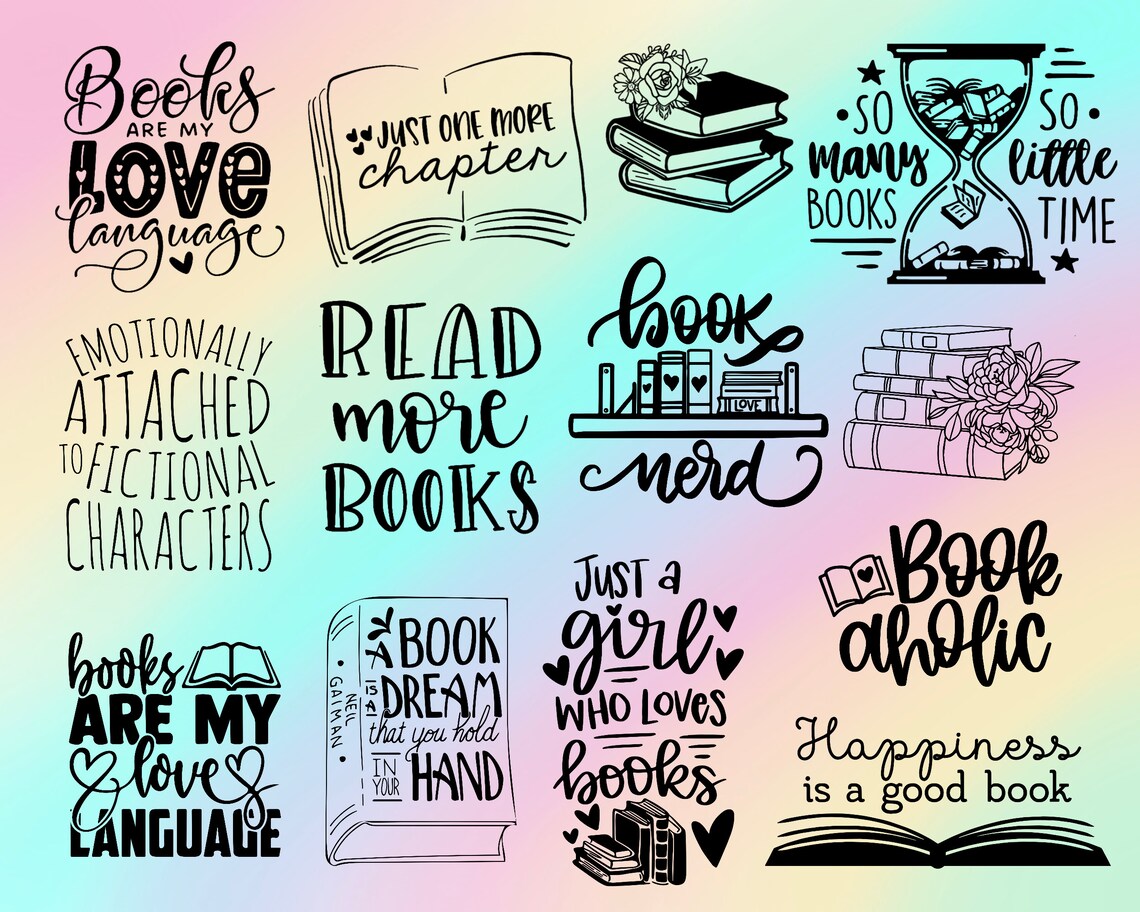 Books
ARE MY
LOVE
language
JUST ONE MORE
chapter
SO
many
BOOKS
SO
little
TIME
EMOTIONALLY
ATTACHED
TO FICTIONAL
CHARACTERS
READ
more
BOOKS
book
LOVE
nerd
books
ARE MY
love
LANGUAGE
A BOOK
IS A DREAM
that you hold
IN YOUR HAND
NEIL
GAIMAN
JUST a
girl
WHO LOVES
books
Book
aholic
Happiness
is a good book